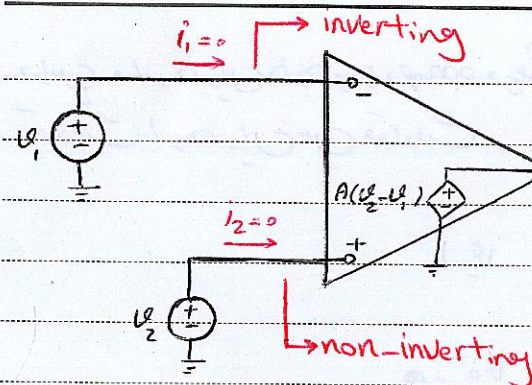 i₁=0
inverting
-
+
-
v₁
A(v₂-v₁)
+
-
i₂=0
+
+
-
v₂
non-inverting